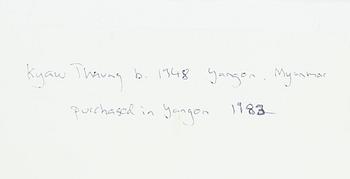 Kyaw Thaung b. 1948 Yangon. Myanmar
purchased in Yangon 1983